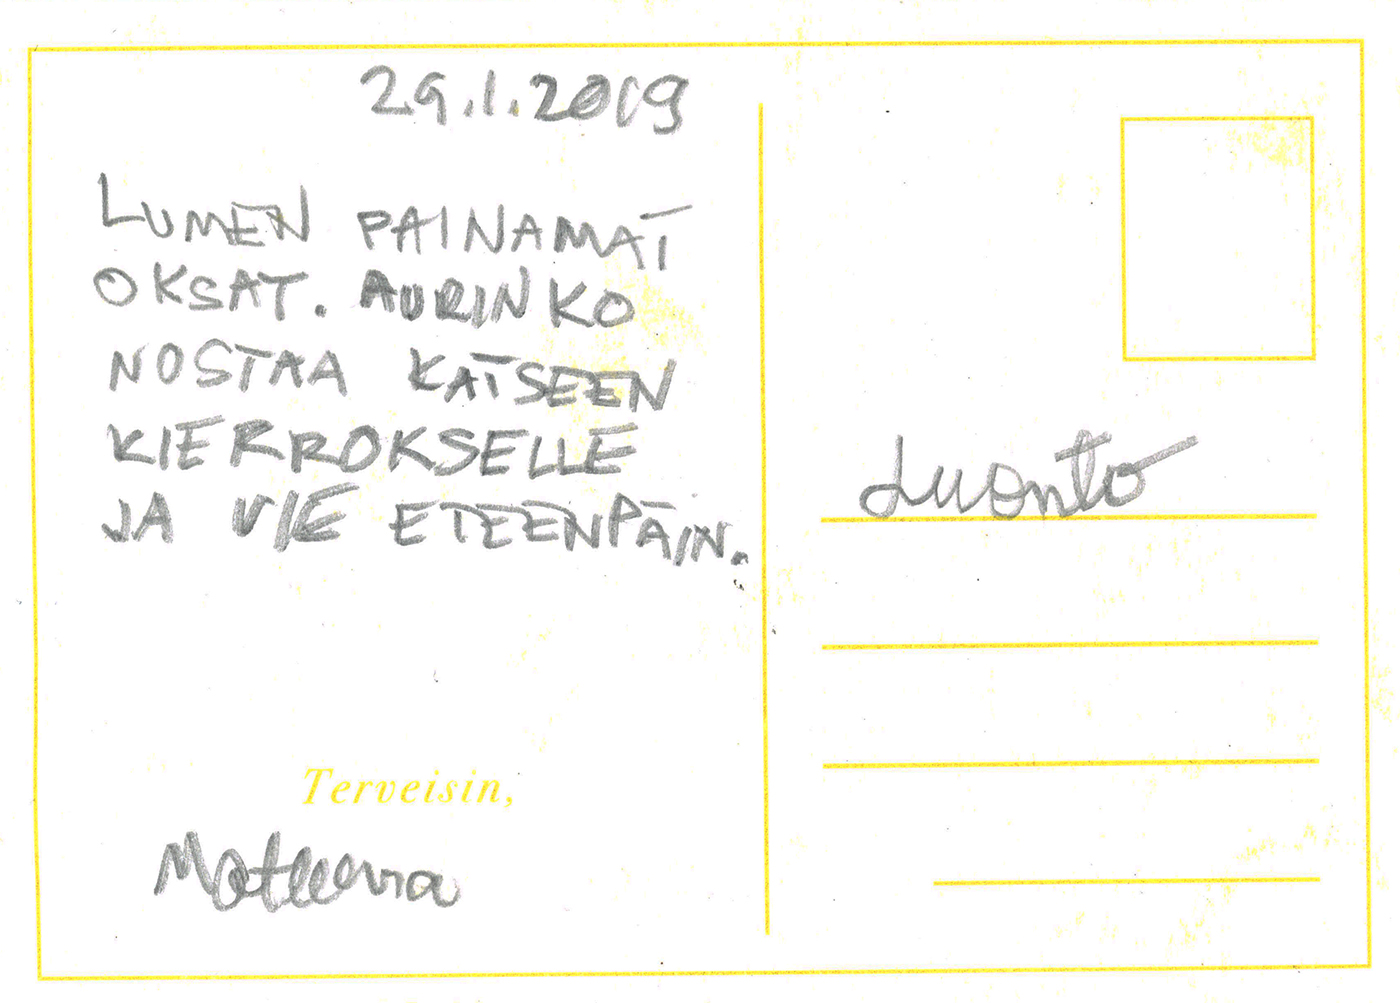 29.1.2019
LUMEN PAINAMAT
OKSAT. AURINKO
NOSTAA KATSEEN
KIERROKSELLE
JA VIE ETEENPÄIN.
Terveisin,
Luonto